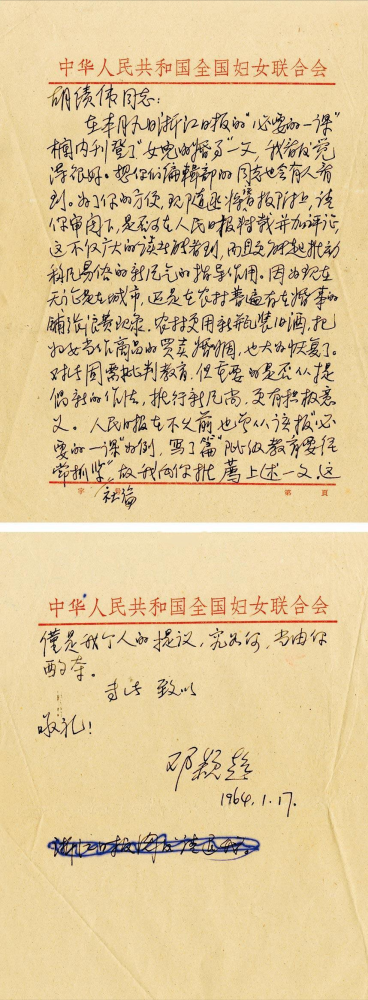 中华人民共和国全国妇女联合会
胡绩伟同志：
在本月九日浙江日报的“必要的一课”
栏内刊登了“女儿的婚事”一文，我看后觉
得很好。想你们编辑部的同志也会有人看
到。为了你的方便，现随函将该报附上，请
你审阅下，是否可在人民日报转载并加评论，
这不仅广大的读者能看到，而且会引起推动
移风易俗的新风气的指导作用。因为现在
无论是在城市，还是在农村普遍存在婚事的
铺张浪费现象。农村更用新瓶装旧酒，把
妇女当作商品的买卖婚姻，也大为恢复了。
对此固需批判教育，但主要的是否从提
倡新的作法，推行新风尚，更有积极意
义。人民日报在不久前也曾从该报“必
要的一课”为例，写了篇“阶级教育要经
常抓紧”社论，故我向你推荐上述一文。这
字 第 页
中华人民共和国全国妇女联合会
仅是我个人的提议，究如何，当由你
酌夺。
专此 致以
敬礼！
邓颖超
1964.1.17.